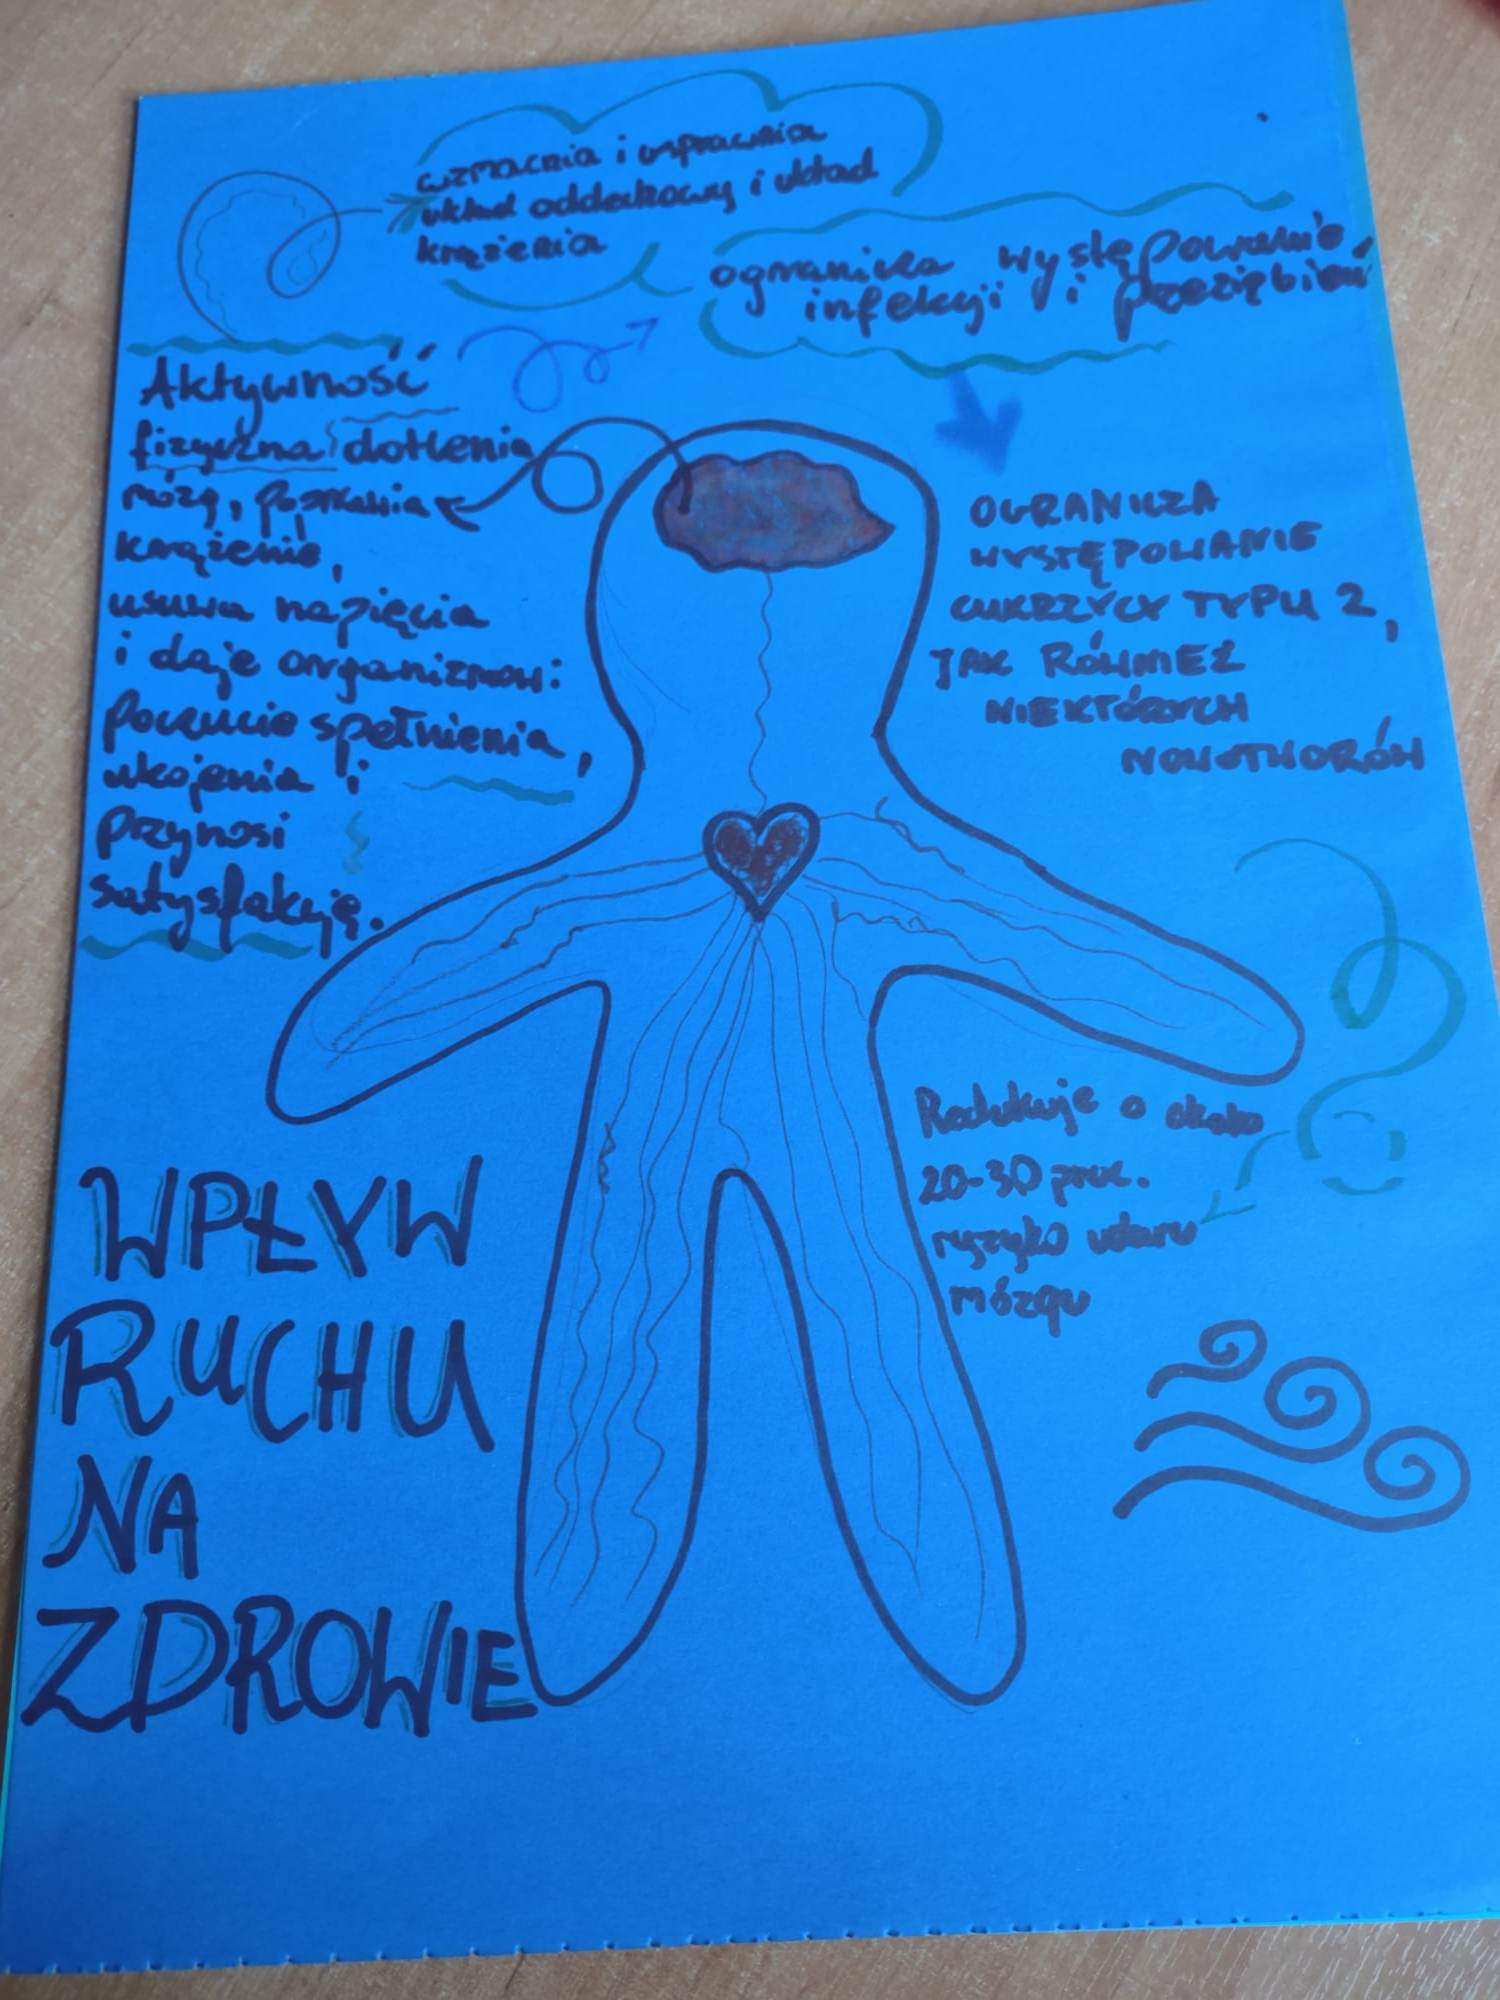 wzmacnia i usprawnia
układ oddechowy i układ
krążenia
ogranicza występowanie
infekcji i przeziębień
Aktywność
fizyczna dotlenia
mózg, poprawia
krążenie,
usuwa napięcia
i daje organizmowi:
poczucie spełnienia,
ukojenia i
przynosi
satysfakcję.
OGRANICZA
WYSTĘPOWANIE
CUKRZYCY TYPU 2,
JAK RÓWNIEŻ
NIEKTÓRYCH
NOWOTWORÓW
Redukuje o około
20-30 proc.
ryzyko udaru
mózgu
WPŁYW
RUCHU
NA
ZDROWIE